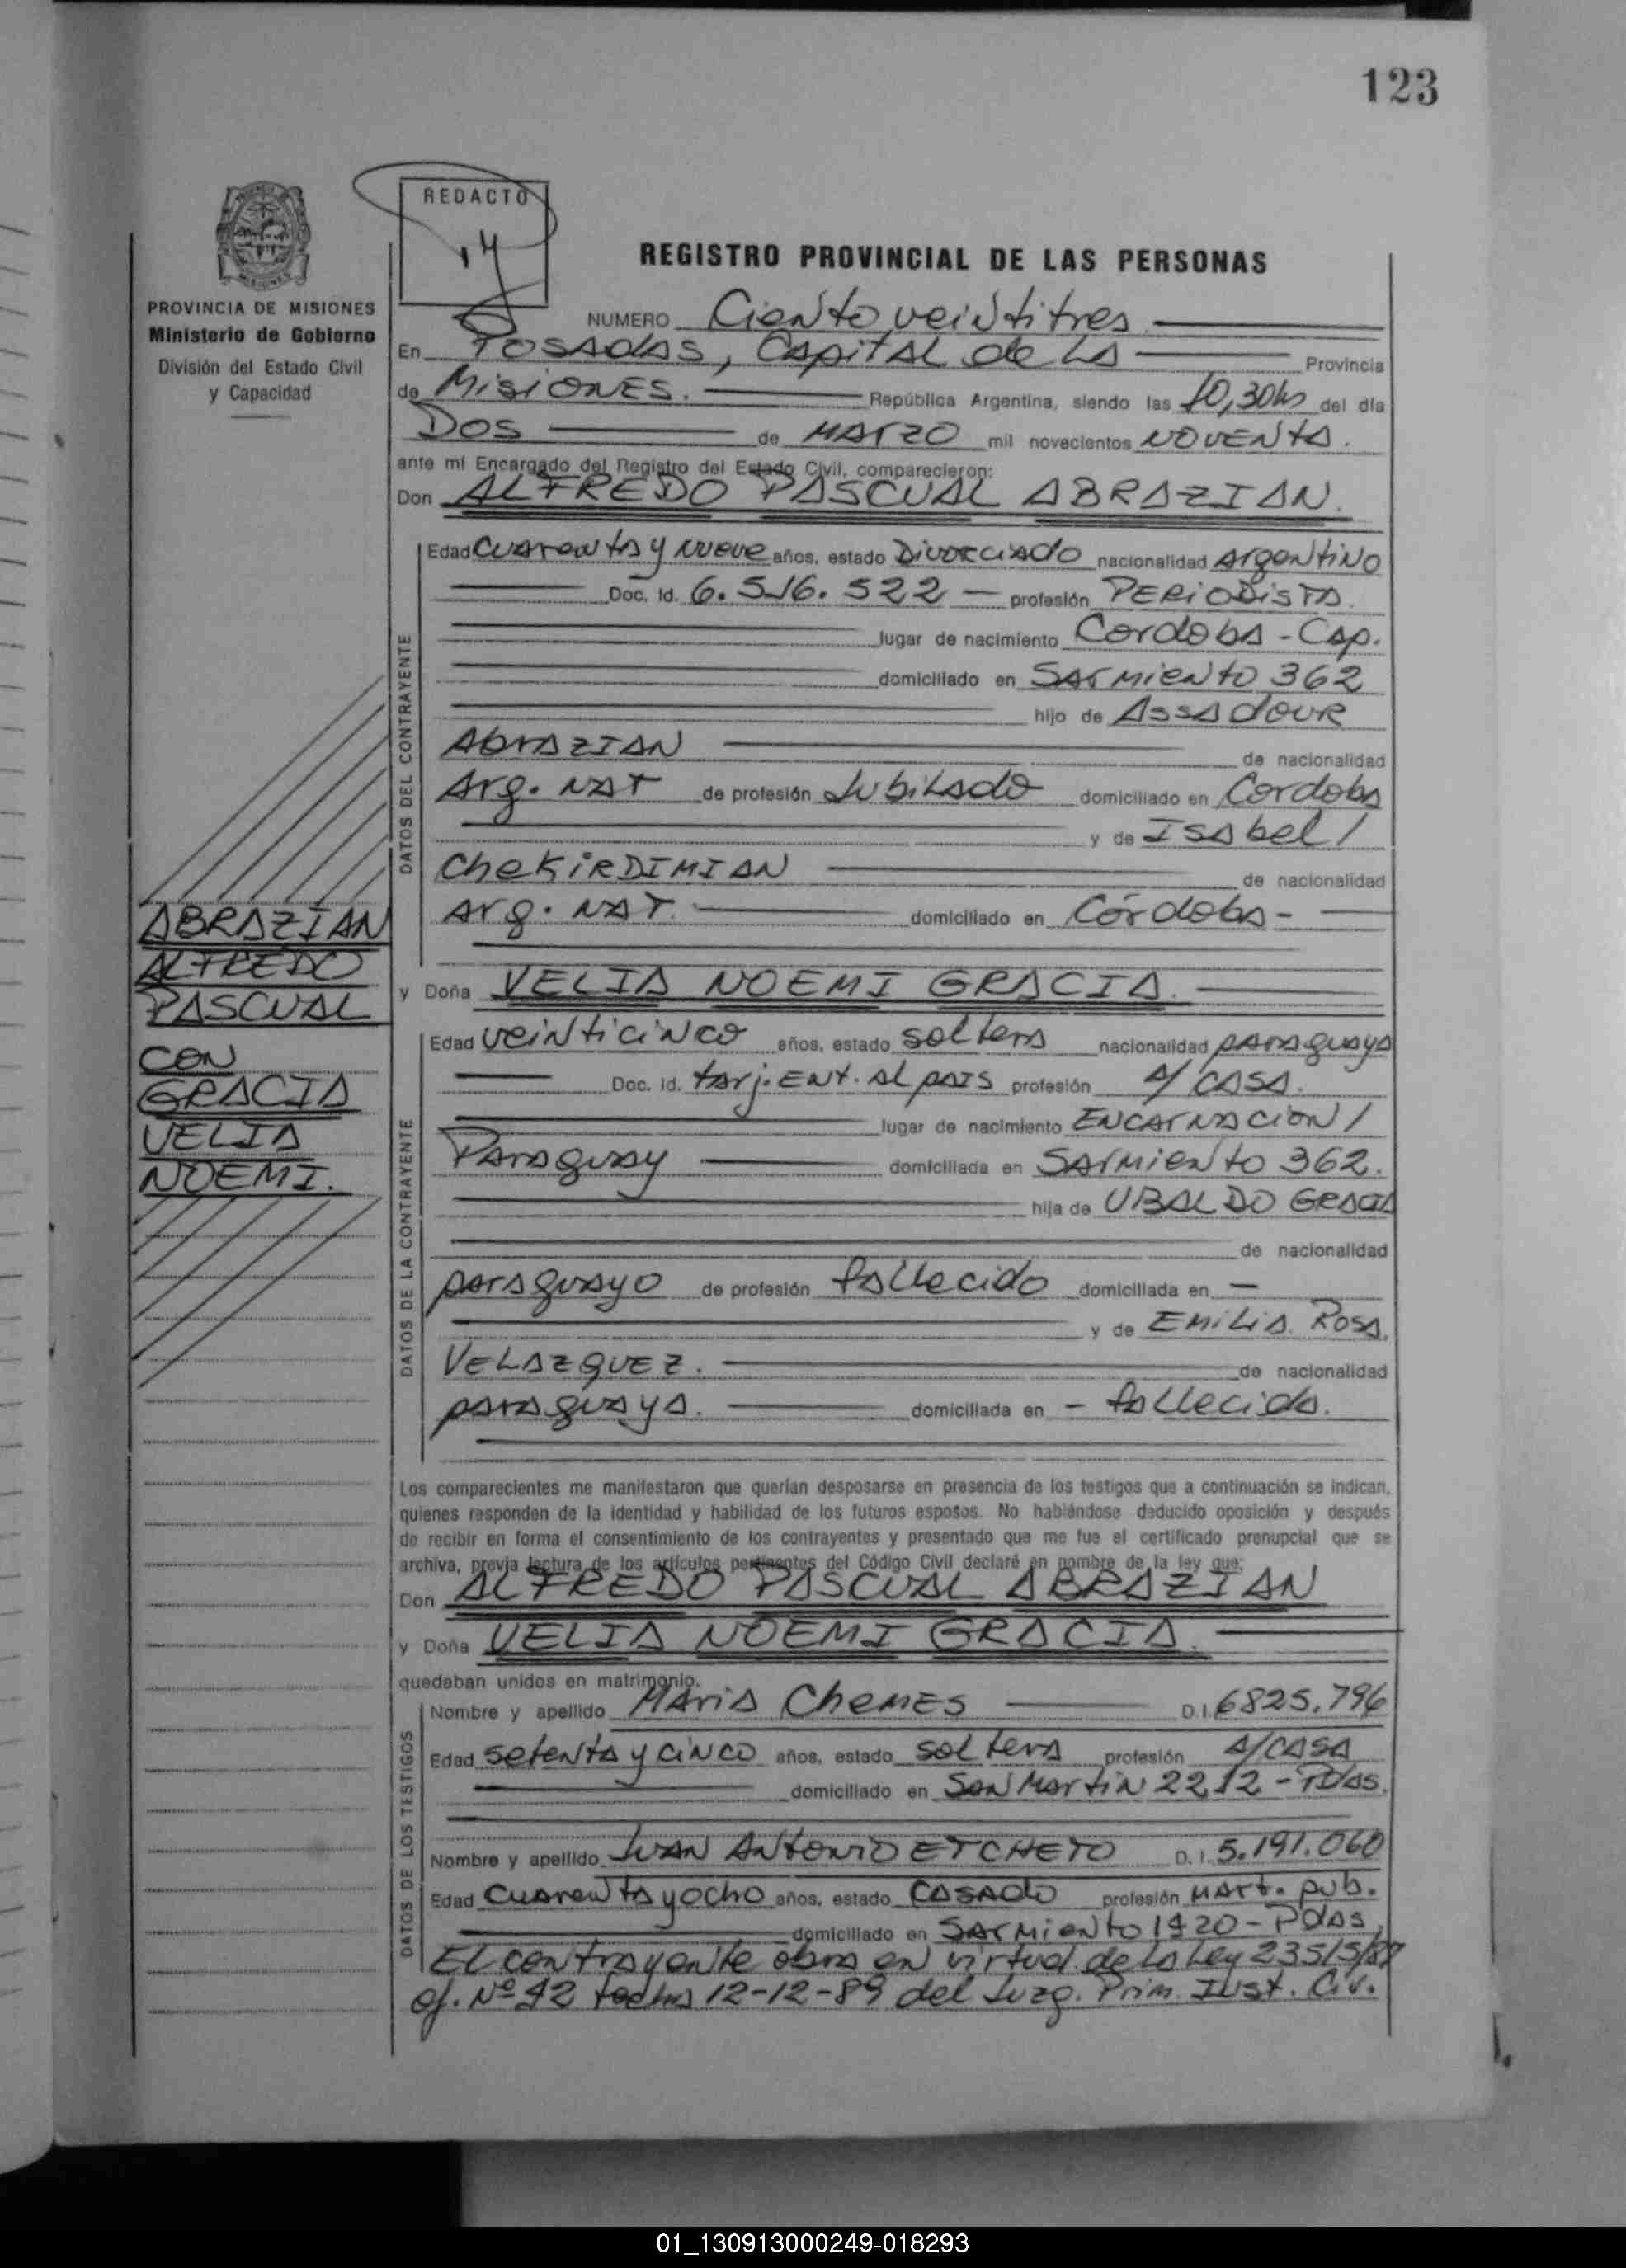 123
REDACTO
PROVINCIA DE MISIONES
Ministerio de Gobierno
División del Estado Civil
y Capacidad
REGISTRO PROVINCIAL DE LAS PERSONAS
NUMERO Ciento veintitres
En Posadas, Capital de la Provincia
de Misiones. República Argentina, siendo las 10,30hs del día
Dos de Marzo mil novecientos noventa.
ante mí Encargado del Registro del Estado Civil, comparecieron:
Don ALFREDO PASCUAL ABRAZIAN.
DATOS DEL CONTRAYENTE
Edad cuarenta y nueve años, estado Divorciado nacionalidad Argentino
Doc. Id. 6.516.522 — profesión Periodista.
lugar de nacimiento Cordoba - Cap.
domiciliado en Sarmiento 362
hijo de Assadour
Abrazian de nacionalidad
Arg. Nat de profesión Jubilado domiciliado en Cordoba
y de Isabel /
CheKirdimian de nacionalidad
Arg. Nat. domiciliado en Córdoba -
y Doña VELIA NOEMI GRACIA.
DATOS DE LA CONTRAYENTE
Edad veinticinco años, estado soltera nacionalidad paraguaya
Doc. Id. tarj. Ent. al pais profesión a/ casa.
lugar de nacimiento Encarnacion /
Paraguay domiciliada en Sarmiento 362.
hija de UBALDO GRACIA
de nacionalidad
paraguayo de profesión fallecido domiciliada en —
y de Emilia Rosa
Velazquez. de nacionalidad
paraguaya. domiciliada en - fallecida.
Los comparecientes me manifestaron que querían desposarse en presencia de los testigos que a continuación se indican,
quienes responden de la identidad y habilidad de los futuros esposos. No habiéndose deducido oposición y después
de recibir en forma el consentimiento de los contrayentes y presentado que me fue el certificado prenupcial que se
archiva, previa lectura de los artículos pertinentes del Código Civil declaré en nombre de la ley que:
Don ALFREDO PASCUAL ABRAZIAN
y Doña VELIA NOEMI GRACIA.
quedaban unidos en matrimonio.
DATOS DE LOS TESTIGOS
Nombre y apellido Maria Chemes D.I. 6825.796
Edad setenta y cinco años, estado soltera profesión a/casa
domiciliado en San Martin 2212 - Pdas.
Nombre y apellido Juan Antonio ETCHETO D.I. 5.191.060
Edad cuarenta y ocho años, estado casado profesión Mart. pub.
domiciliado en Sarmiento 1920 - Pdas.
El contrayente obra en virtud de la Ley 23515/87
of. Nº 42 fecha 12-12-89 del Juzg. Prim. Inst. Civ.
ABRAZIAN
ALFREDO
PASCUAL
CON
GRACIA
VELIA
NOEMI.
01_130913000249-018293